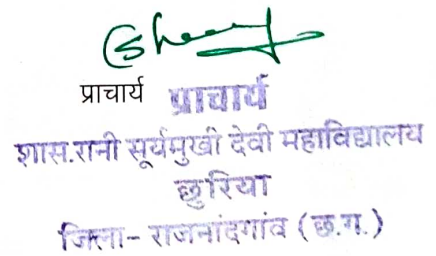 प्राचार्य प्राचार्य
शास.रानी सूर्यमुखी देवी महाविद्यालय
छुरिया
जिला- राजनांदगांव (छ.ग.)